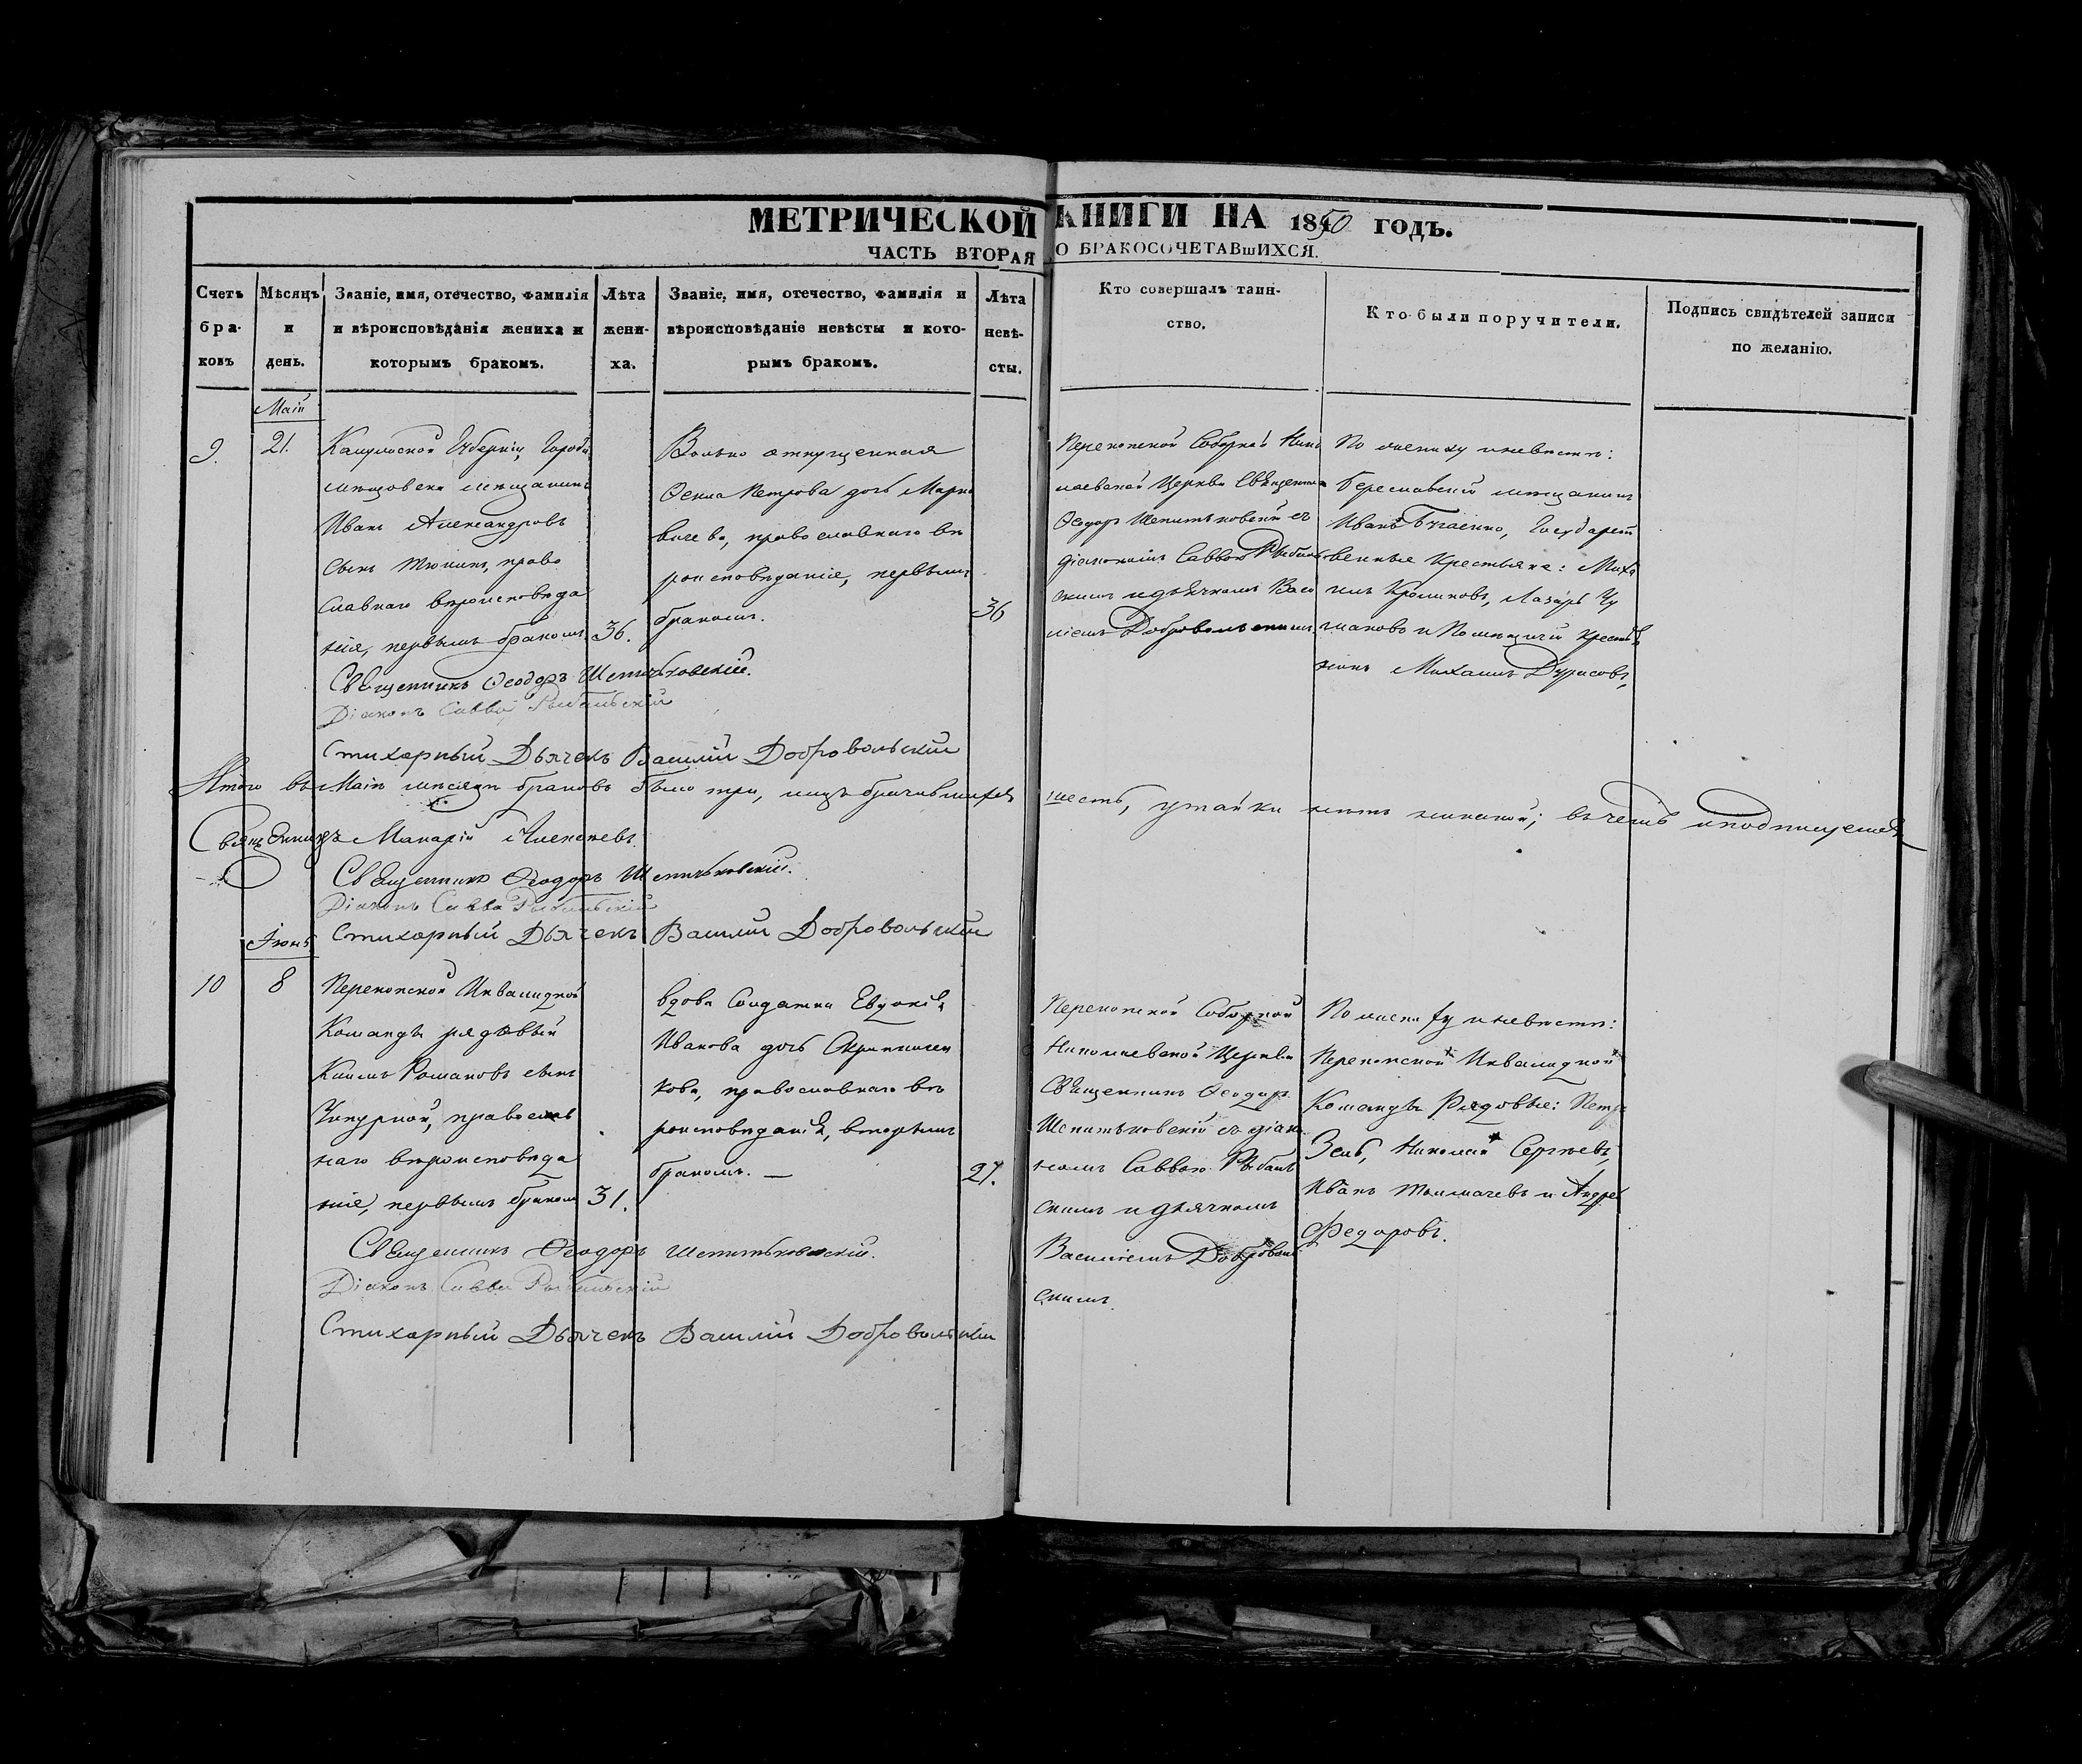 МЕТРИЧЕСКОЙ КНИГИ НА 1850 ГОДЪ.
ЧАСТЬ ВТОРАЯ О БРАКОСОЧЕТАВШИХСЯ.
Счетъ
бра-
ковъ
Мѣсяцъ
и
день.
Званіе, имя, отечество, фамилія
и вѣроисповѣданія жениха и
которымъ бракомъ.
Лѣта
жени-
ха.
Званіе, имя, отечество, фамилія и
вѣроисповѣданіе невѣсты и кото-
рымъ бракомъ.
Лѣта
невѣ-
сты.
Кто совершалъ таин-
ство.
Кто были поручители.
Подпись свидѣтелей записи
по желанію.
Маій
9.
21.
Калужской Губерніи,
мещовска мѣщанинъ
Иванъ Александровъ
сынъ Тюнинъ, право
славнаго вѣроисповѣда
нія, первымъ бракомъ
36.
Вольно отпущенная
Ѳекла Петрова дочь
православнаго вѣ
роисповѣданіе, первымъ
бракомъ.
36
Перекопской Соборной Нико
лаевской Церкви Священникъ
Ѳеодоръ Шепитьковскій съ
діакономъ Саввою Рыбаль
скимъ и дьячкомъ Васи
ліемъ Добровольскимъ
По жениху и невѣстѣ:
Бериславскій мѣщанинъ
Иванъ Бугаенко, Государст
венные Крестьяне: Миха
илъ Крошновъ, Лазарь Чу
маковъ и Помѣщичій Кресть
янинъ Михаилъ Дурасовъ,
Священникъ Ѳеодоръ Шепитьковскій.
Діаконъ Савва Рыбальскій
Стихарный Дьячекъ Василій Добровольскій
Итого въ Маіѣ мѣсяцѣ браковъ было три, лицъ брачившихся шесть, утайки нѣтъ никакой; въ чемъ и подписуемся
Священникъ Макарій
Священникъ Ѳеодоръ Шепитьковскій.
Діаконъ Савва Рыбальскій
Стихарный Дьячекъ Василій Добровольскій
Іюнь
10
8
Перекопской Инвалидной
Команды рядовый
Климъ Романовъ сынъ
Чипурной, православ
наго вѣроисповѣда
ніе, первымъ бракомъ
31.
вдова Солдатка Евдокія
Иванова дочь
кова, православнаго вѣ
роисповѣданія, вторымъ
бракомъ. —
27.
Перекопской Соборной
Николаевской Церкви
Священникъ Ѳеодоръ
Шепитьковскій съ діако
номъ Саввою Рыбаль
скимъ и дьячкомъ
Василіемъ Доброволь
скимъ.
По жениху и невѣстѣ:
Перекопской Инвалидной
Команды Рядовые: Петръ
Зень, Николай Сергѣевъ,
Иванъ Толмачевъ и Андрей
Федоровъ.
Священникъ Ѳеодоръ Шепитьковскій.
Діаконъ Савва Рыбальскій
Стихарный Дьячекъ Василій Добровольскій